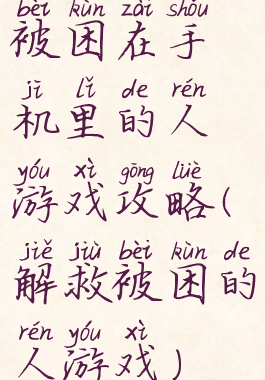 bèi kùn zài shǒu
被困在手
jī lǐ de rén
机里的人
yóu xì gōng lüè
游戏攻略(
jiě jiù bèi kùn de
解救被困的
rén yóu xì
人游戏)